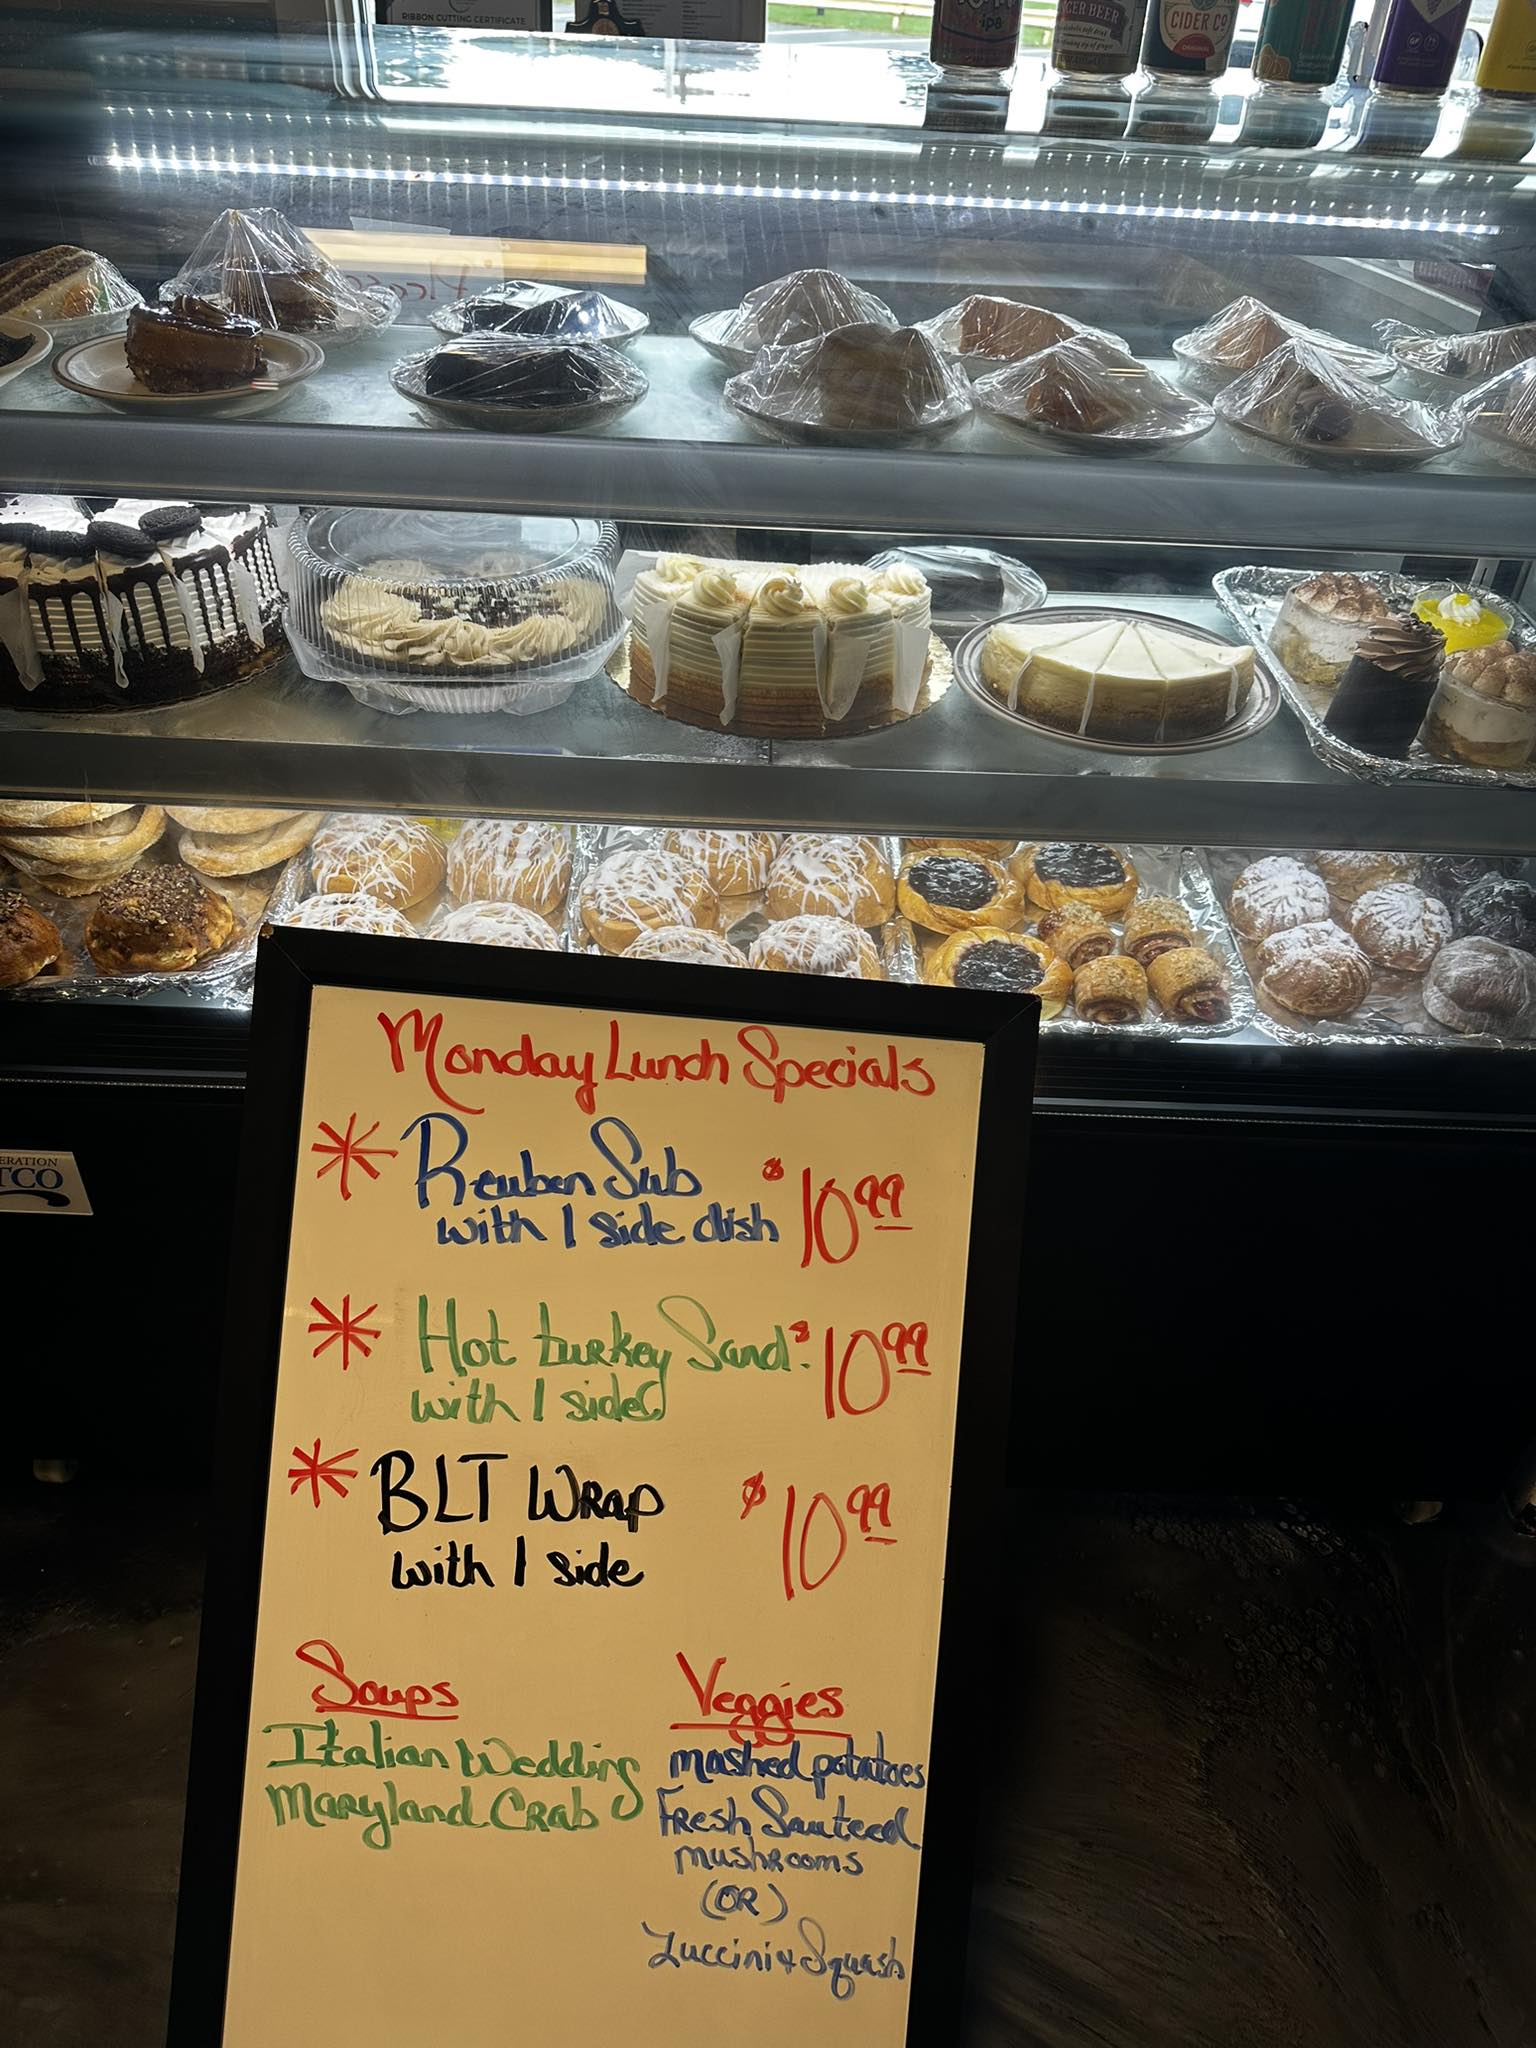 RIBBON CUTTING CERTIFICATE
CIDER CO
ORIGINAL
Monday Lunch Specials
* Reuben Sub $10.99
with 1 side dish
* Hot turkey Sand. $10.99
with 1 side
* BLT Wrap $10.99
with 1 side
Soups
Italian Wedding
Maryland Crab
Veggies
mashed potatoes
Fresh Sauteed
mushrooms
(OR)
Zuccini & Squash